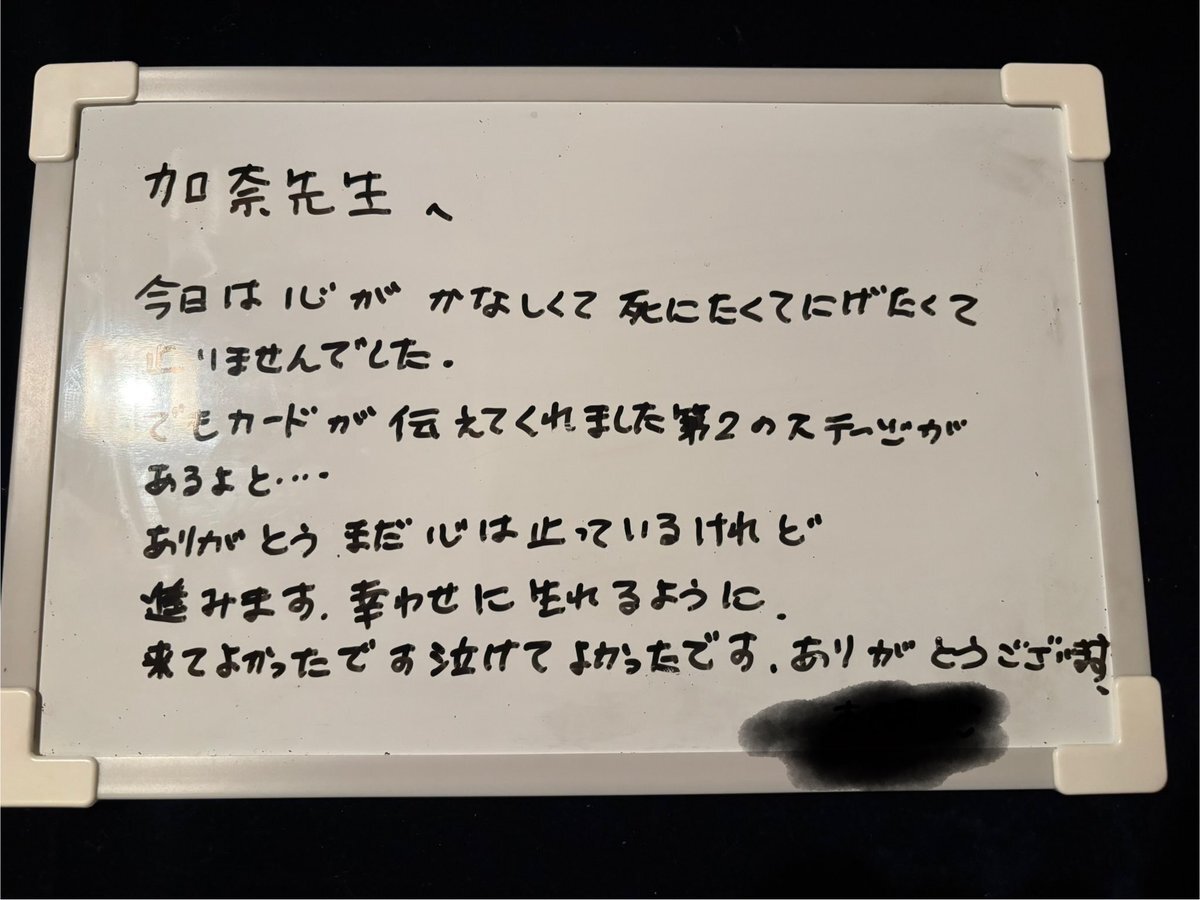 加奈先生へ
今日は心が かなしくて 死にたくてにげたくて
りませんでした.
でもカードが 伝えてくれました第2のステージが
あるよと・・・
ありがとう まだ心は止っているけれど
進みます. 幸わせに生れるように.
来てよかったです泣けてよかったです. ありがとうございます、